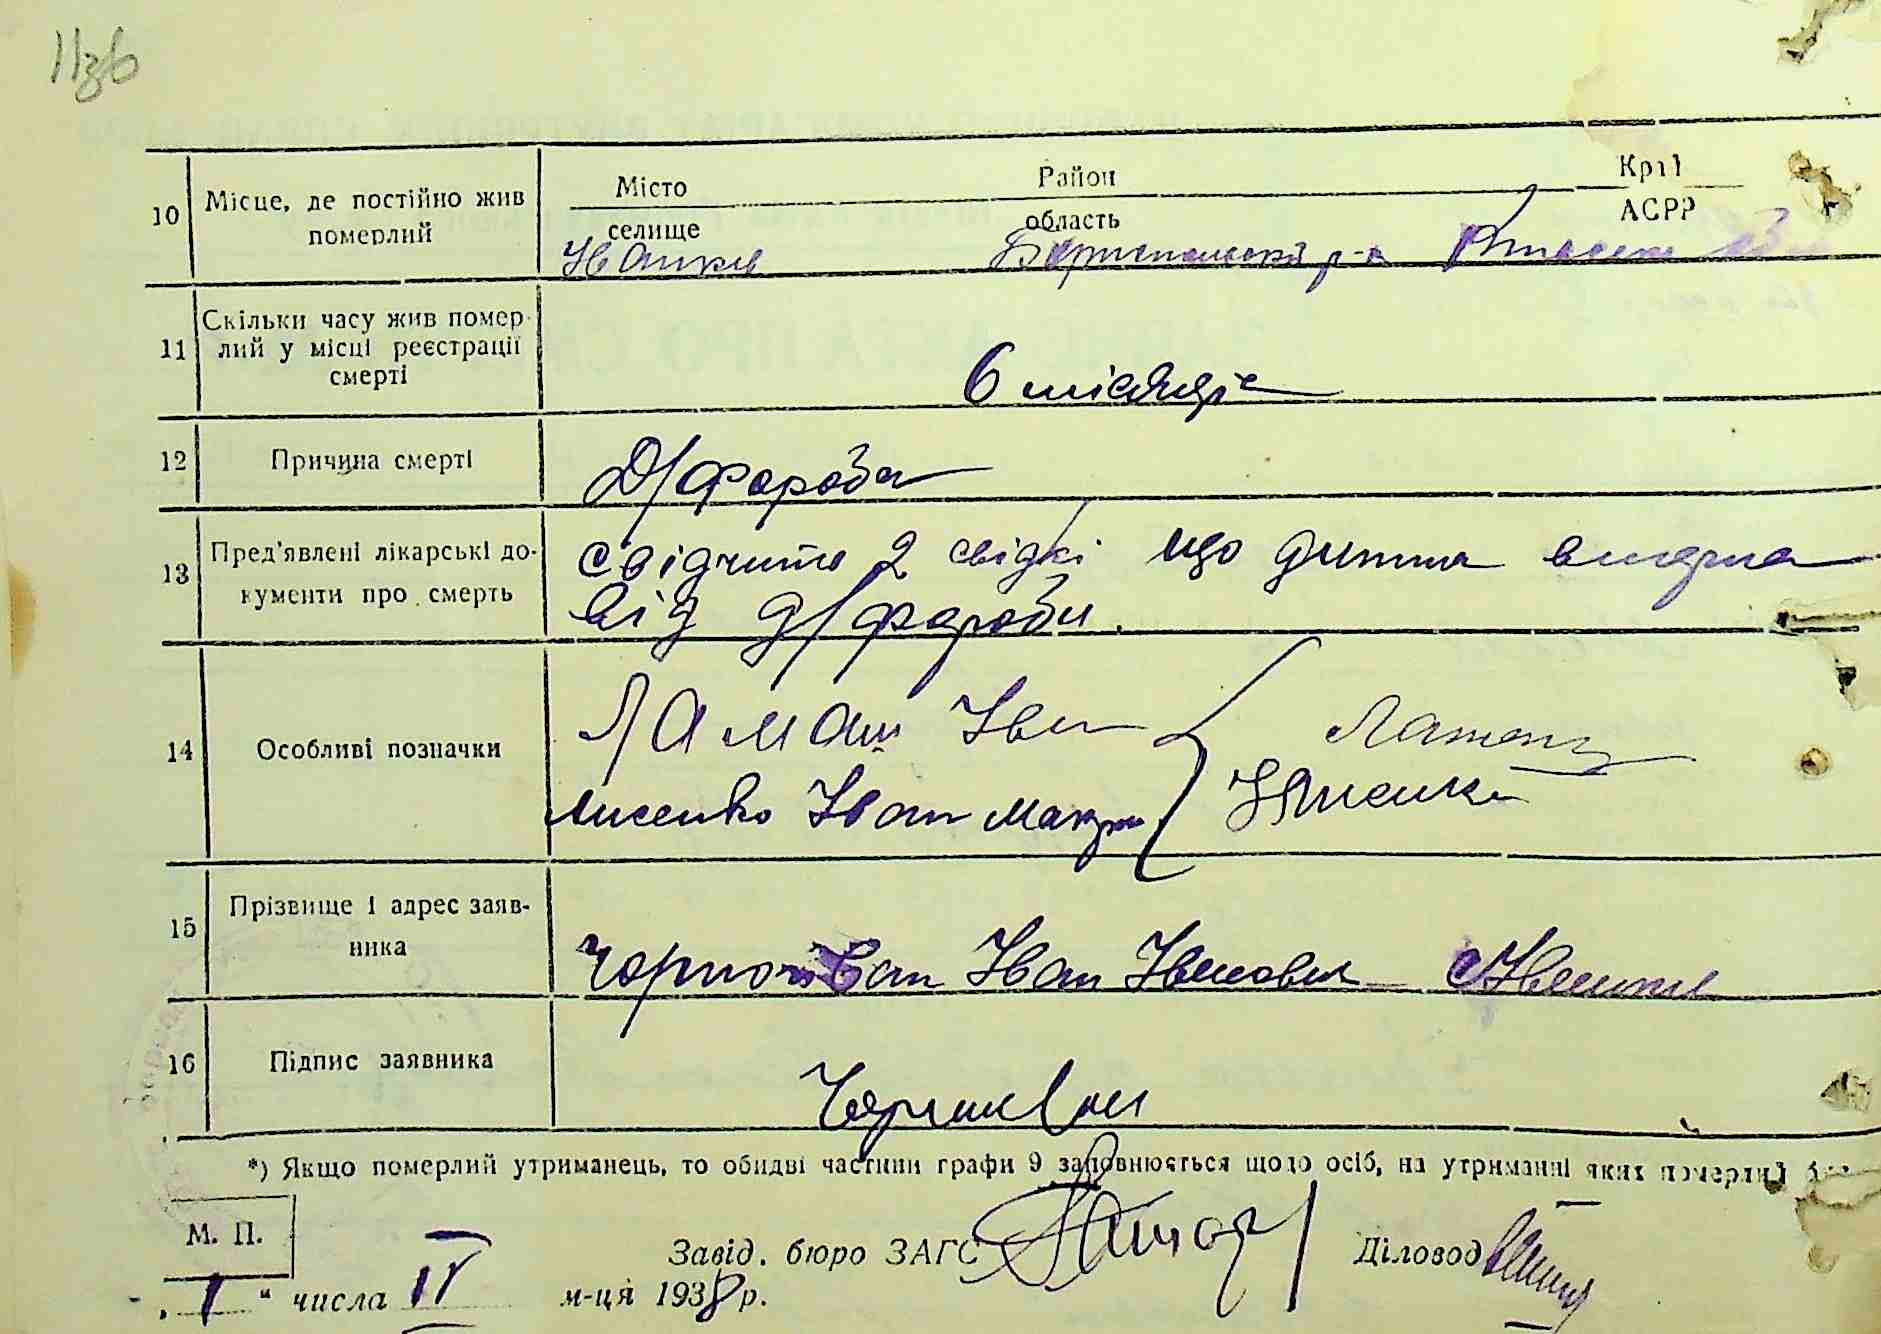 10 Місце, де постійно жив померлий
Місто Район Край
селище область АСРР
Іванків Бориспольский р-н
11 Скільки часу жив помер-
лий у місці реєстрації
смерті
6 місяців
12 Причина смерті
Д/фороба
13 Пред'явлені лікарські до-
кументи про смерть
свідчить 2 свідкі що дитина вмерла
від д/фороби.
14 Особливі позначки
Ламаш Іван
Лисенко Іван Макар
15 Прізвище і адрес заяв-
ника
Чорновван Іван Іванович с Іванків
16 Підпис заявника
*) Якщо померлий утриманець, то обидві частини графи 9 заповнюється щодо осіб, на утриманні яких померлий був
М. П.
Завід. бюро ЗАГС Діловод
„ 1 " числа IV м-ця 1938 р.